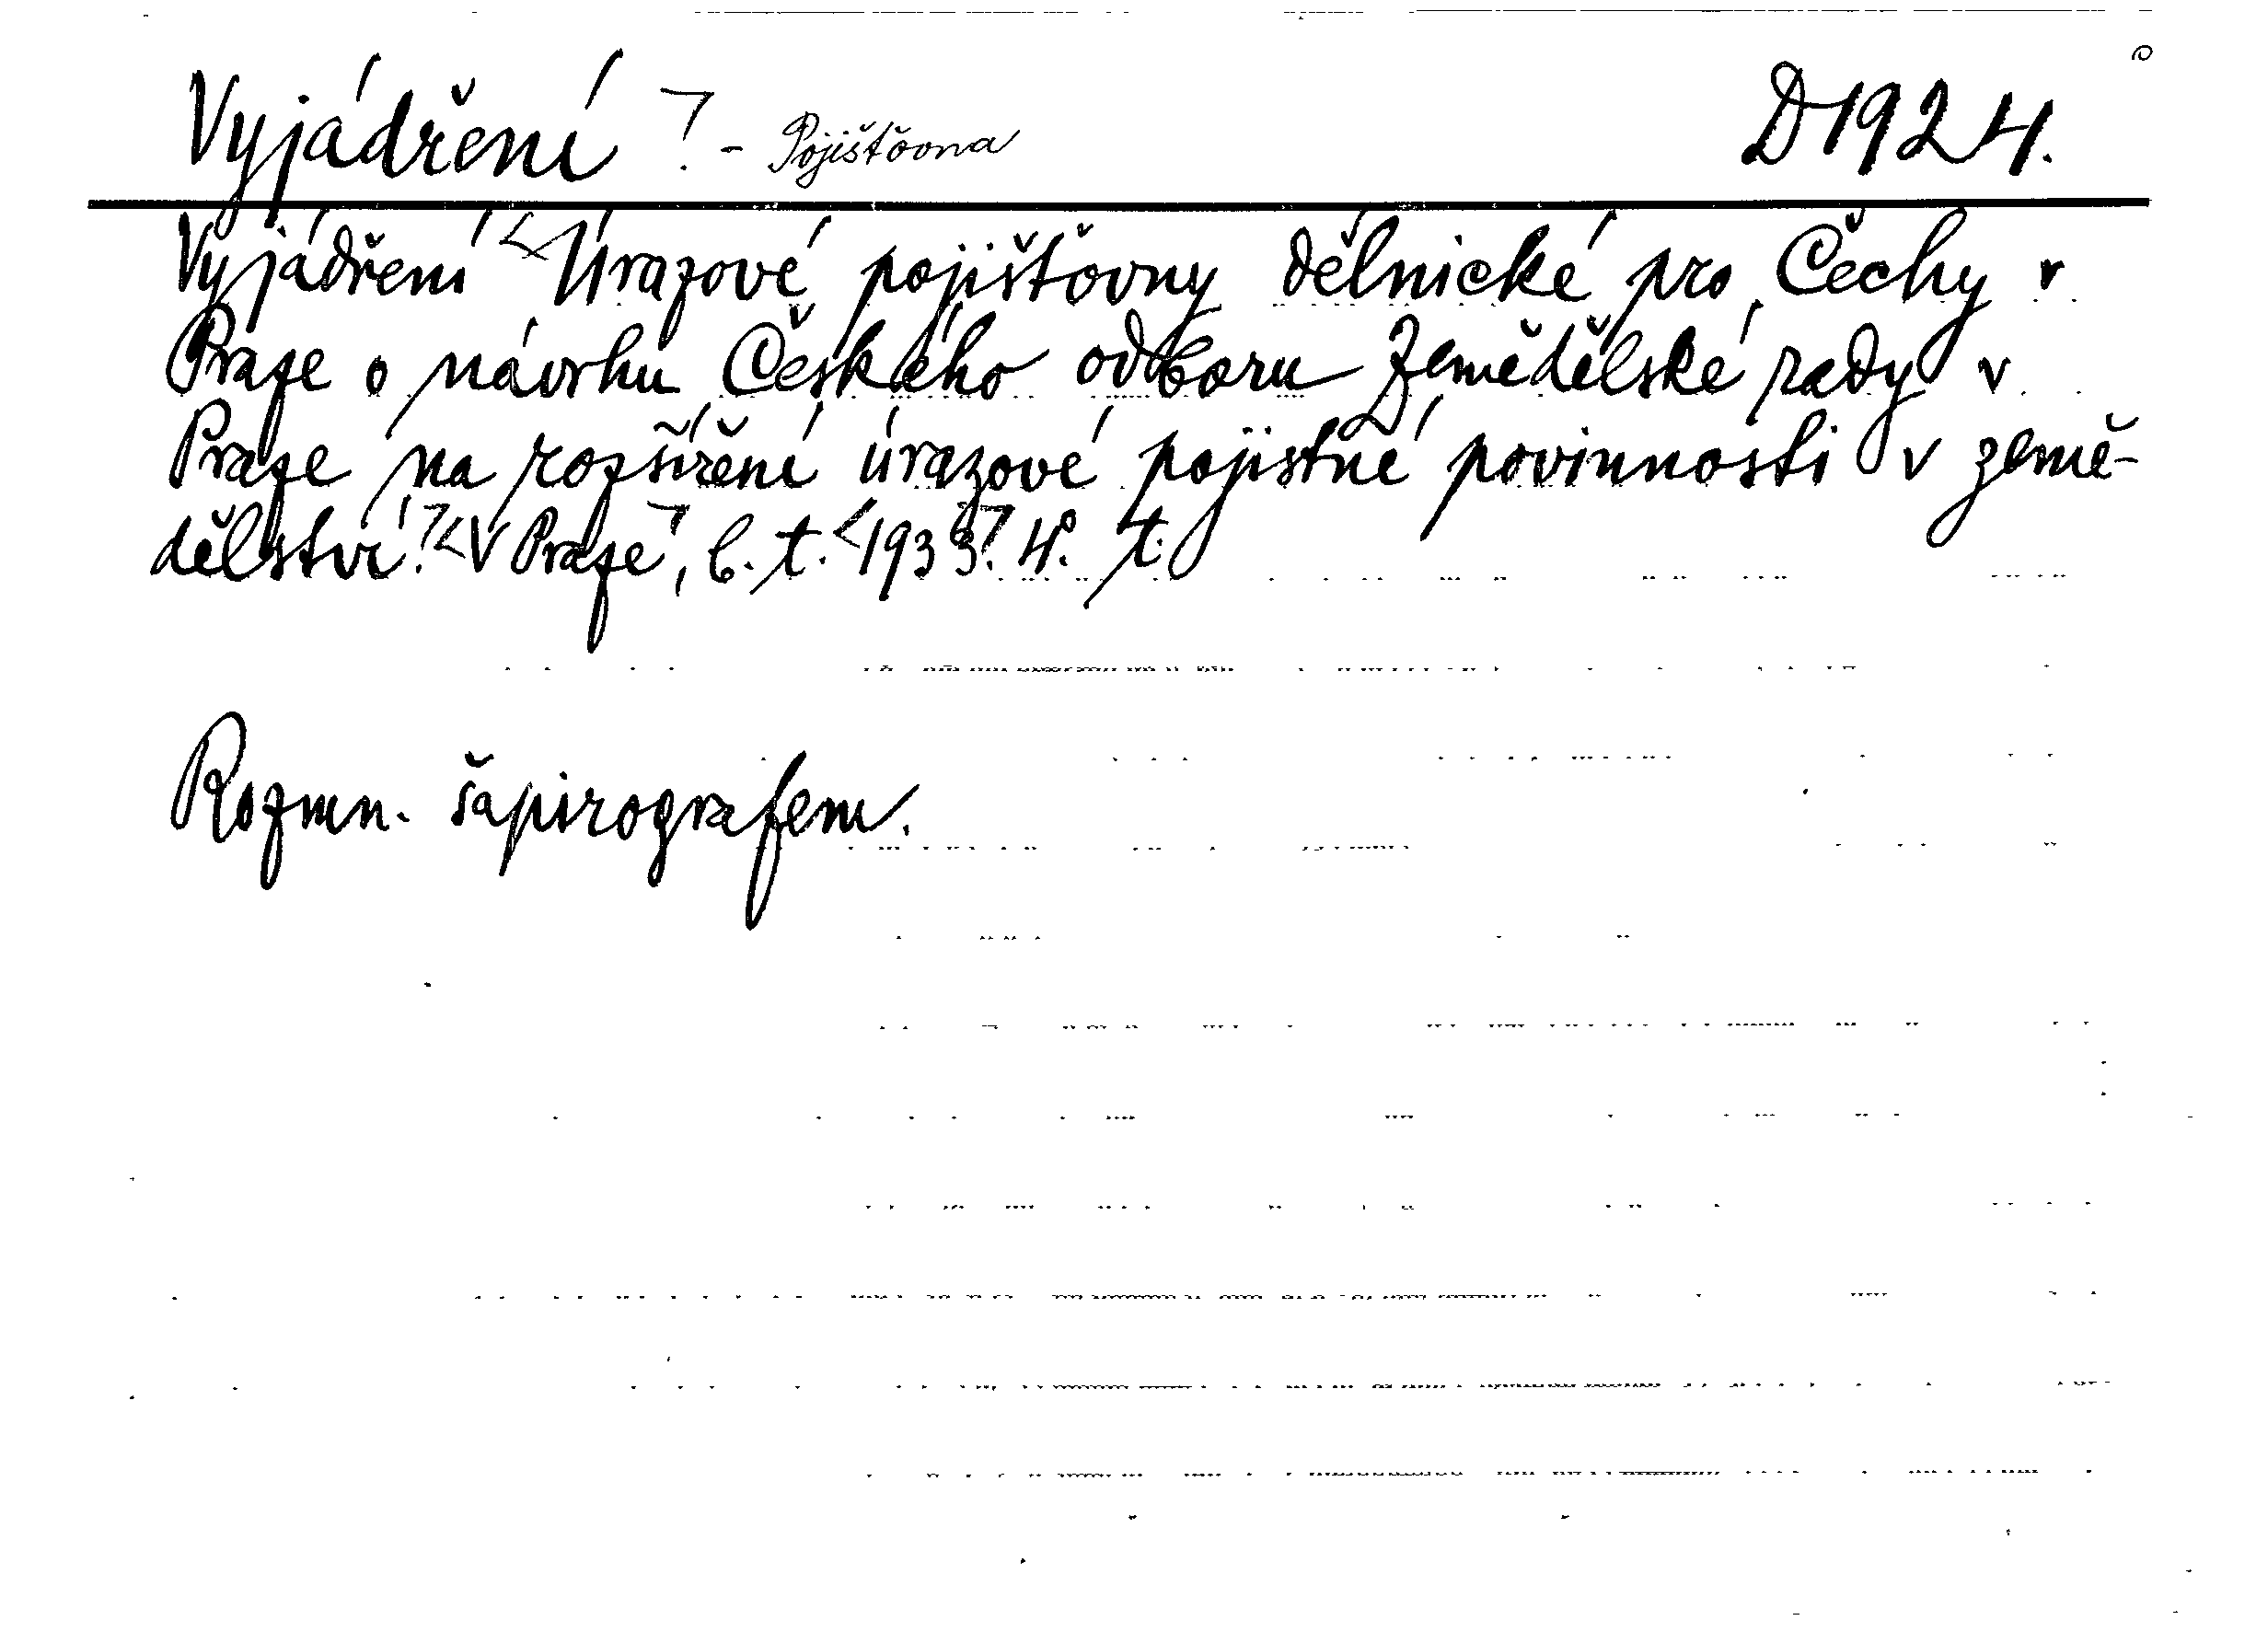 Vyjádření ꓶ. - Pojišťovna D 1924.
Vyjádření <Úrazové pojišťovny dělnické pro Čechy v
Praze o návrhu Českého odboru Zemědělské rady v
Praze na rozšíření úrazové pojistné povinnosti v země-
dělství.ꓶ <V Prazeꓶ, b. t. <1933ꓶ. 4°. t.
Rozmn. šapirografem.